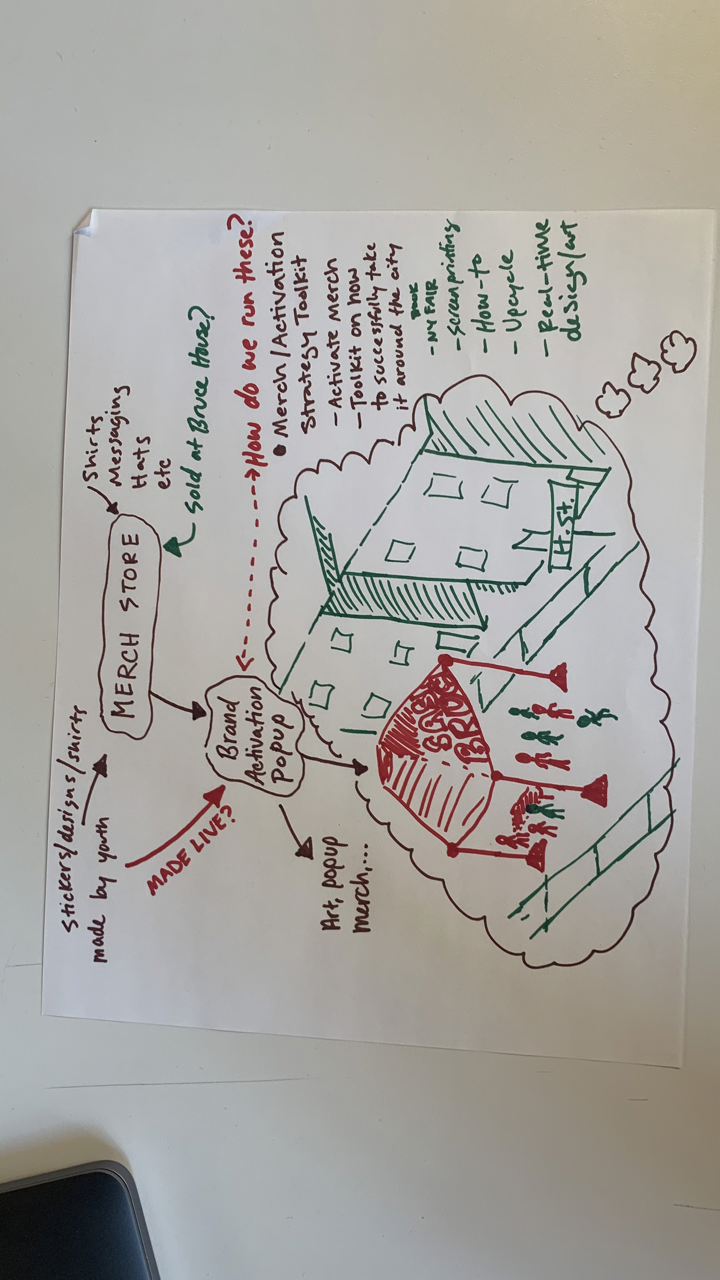 Stickers/designs/shirts
made by youth
MERCH STORE
Shirts
Messaging
Hats
etc
Sold at Bruce House?
MADE LIVE?
Brand
Activation
Popup
Art, popup
merch,...
How do we run these?
• Merch/Activation
Strategy Toolkit
- Activate Merch
- Toolkit on how
to successfully take
it around the city
- NY BOOK FAIR
- Screenprinting
- How-to
- Upcycle
- Real-time
design/art
H. St.